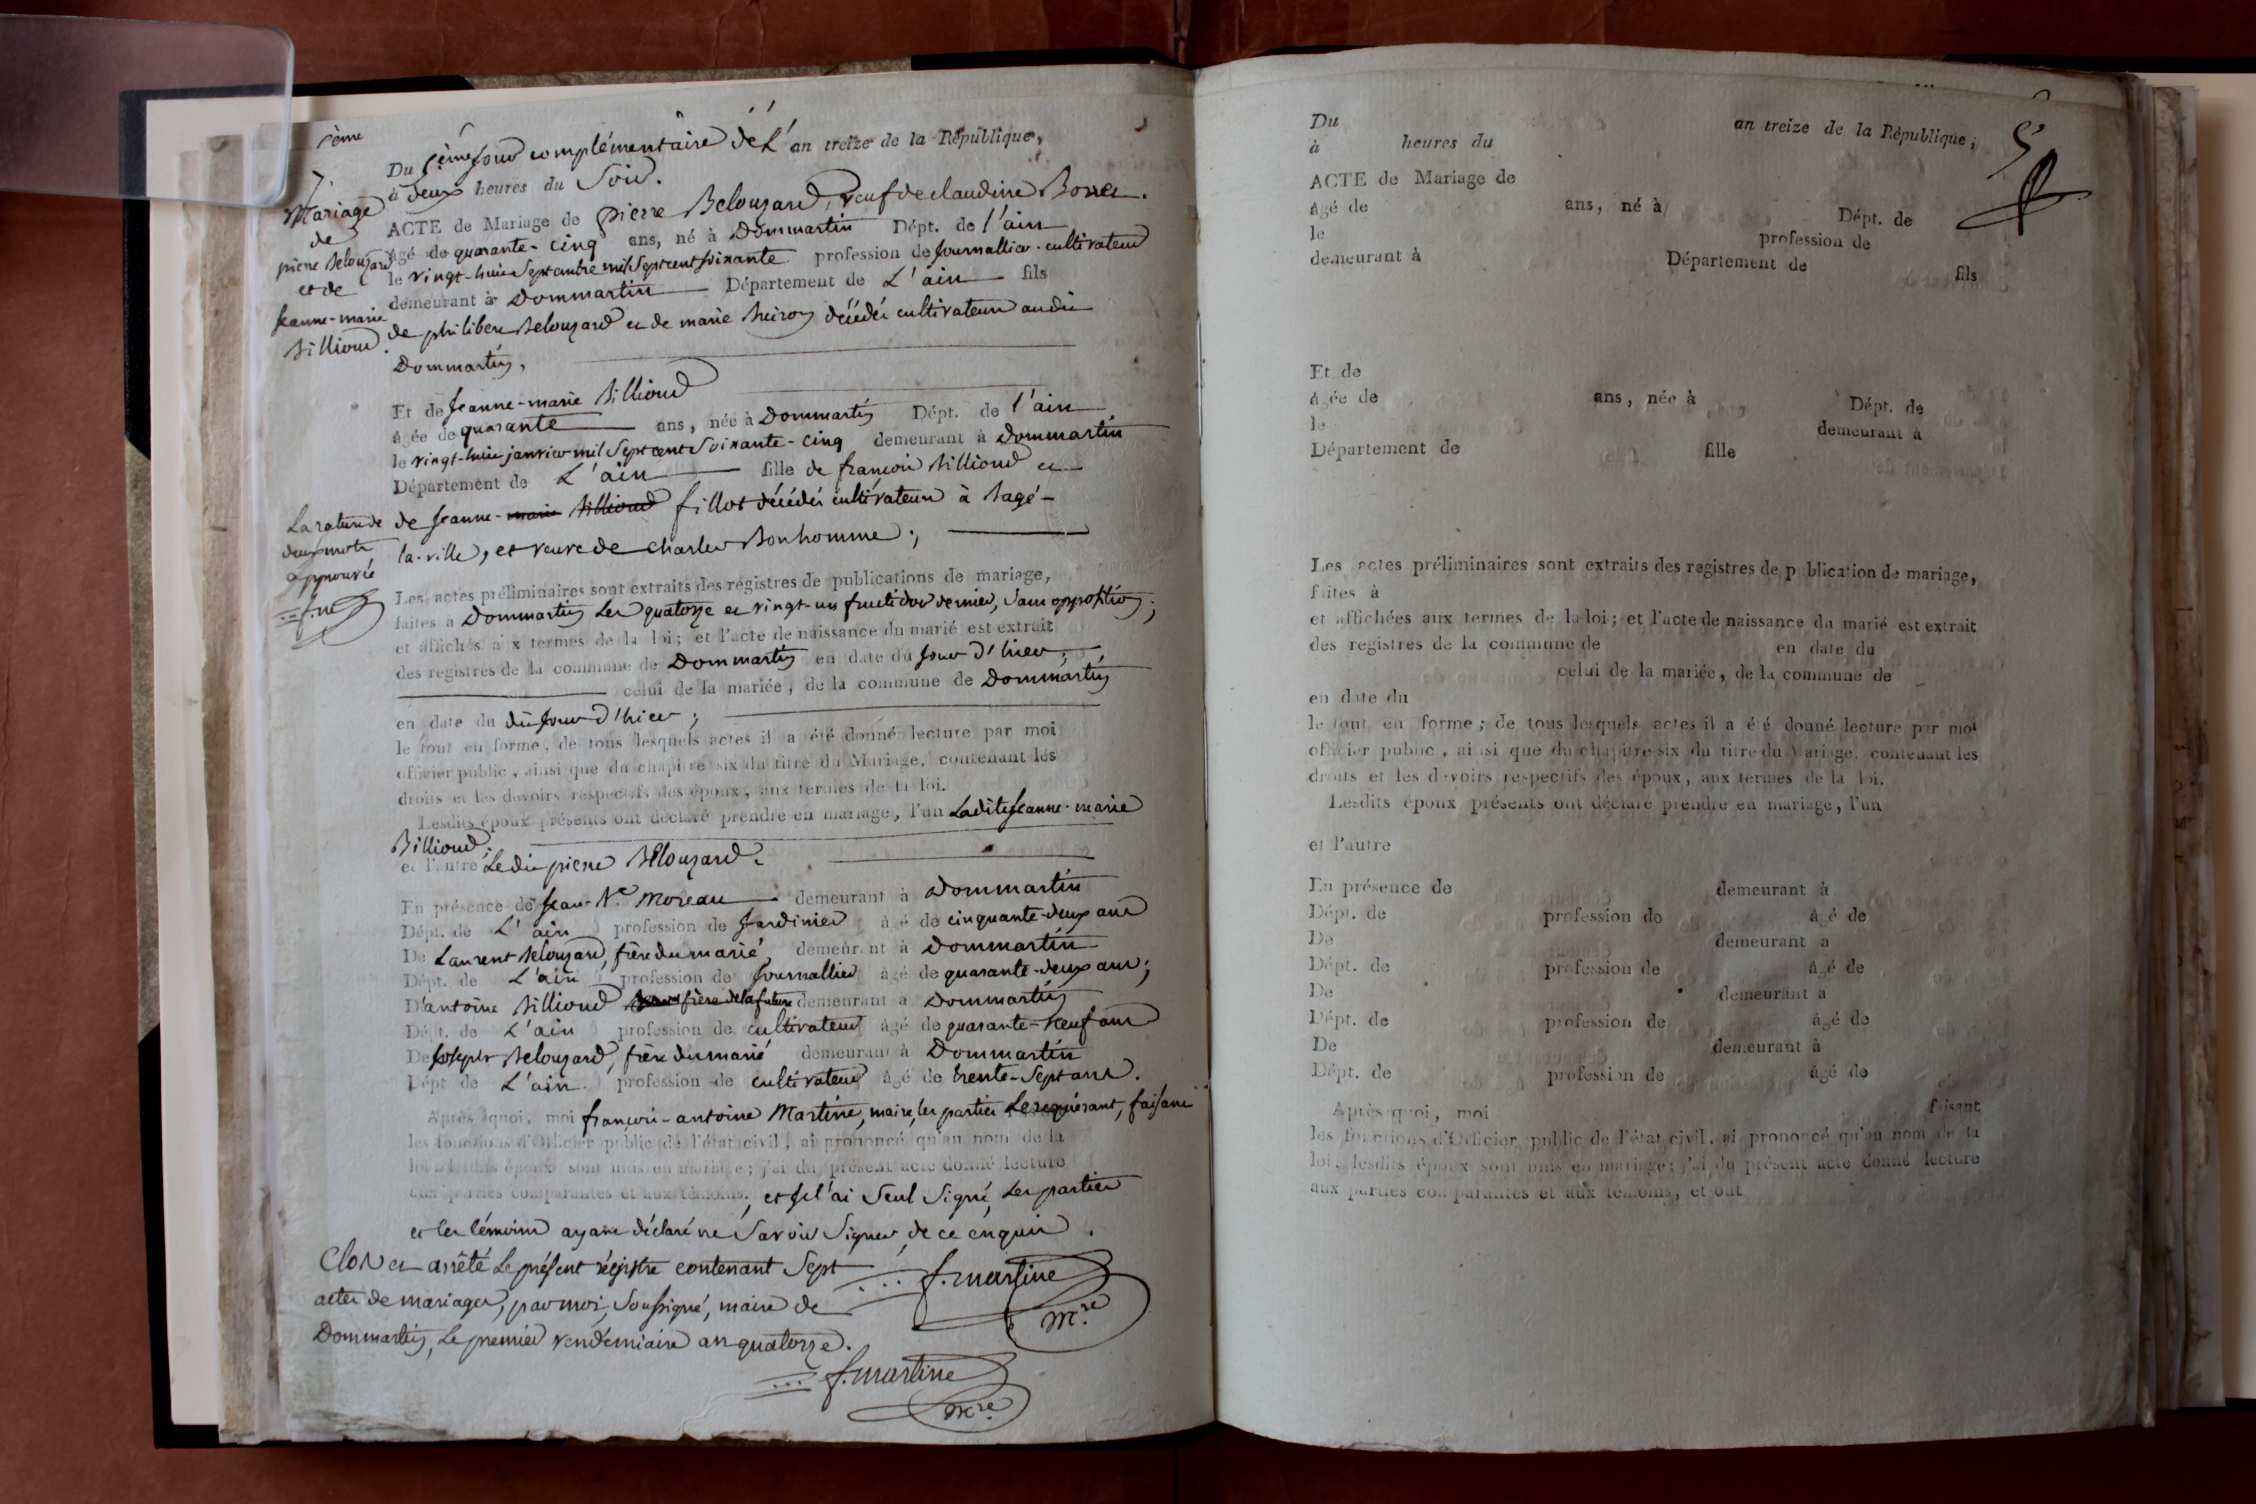 5ème
Du 5ème Jour complémentaire dé L' an treize de la République,
à deux heures du Soir.
Mariage
de
pierre Belouzard
et de
Jeanne-marie
Billioud.
ACTE de Mariage de pierre Belouzard, veuf de claudine
Agé de quarante-cinq ans, né à Dommartin Dépt. de l'ain
le vingt-huit Septembre mil Sept cent Soixante profession de Journallier-cultivateur
demeurant à Dommartin Département de L'ain fils
de philibert Belouzard et de marie décédés cultivateurs audit
Dommartin,
Et de Jeanne-marie Billioud
âgée de quarante ans, née à Dommartin Dépt. de l'ain
le vingt-huit janvier mil Sept cent Soixante-cinq demeurant à Dommartin
Département de L'ain fille de françois Billioud et
de Jeanne-marie Billioud fillot décédés cultivateurs à Bagé-
la-ville, et veuve de charles Bonhomme;
La rature de
deux mots
approuvée
Les actes préliminaires sont extraits des registres de publications de mariage,
faites à Dommartin Les quatorze et vingt-un fructidor dernier, Sans opposition;
et affichés aux termes de la loi; et l'acte de naissance du marié est extrait
des registres de la commune de Dommartin en date du Jour d'hier;
celui de la mariée, de la commune de Dommartin
en date du dit Jour d'hier;
le tout en forme, de tous lesquels actes il a été donné lecture par moi
officier public, ainsi que du chapitre six du titre du Mariage, contenant les
droits et les devoirs respectifs des époux, aux termes de la loi.
Lesdits époux présents ont déclaré prendre en mariage, l'un Ladite Jeanne-marie
Billioud.
et l'autre Ledit pierre Belouzard.
En présence de Jean-N.e Moreau demeurant à Dommartin
Dépt. de L'ain profession de Jardinier âgé de cinquante-deux ans
De Laurent Belouzard, frère du marié, demeurant à Dommartin
Dépt. de L'ain profession de Journallier âgé de quarante-deux ans;
D'antoine Billioud frère de la future demeurant à Dommartin
Dépt. de L'ain profession de cultivateur âgé de quarante-neuf ans
De Joseph Belouzard, frère du marié demeurant à Dommartin
Dépt de L'ain profession de cultivateur âgé de trente-Sept ans.
Après quoi, moi françois-antoine Martine, maire, les parties Le requérant, faisant
les fonctions d'Officier public de l'état civil, ai prononcé qu'au nom de la
loi lesdits époux sont unis en mariage; j'ai du présent acte donné lecture
aux parties comparantes et aux témoins, et Je l'ai Seul Signé, Les parties
et les témoins ayant déclaré ne Savoir Signer, de ce enquis.
Clos et arrêté Le présent régistre contenant Sept
f. martine
actes de mariages, par moi, Soussigné, maire de
m.re
Dommartin, Le premier vendémiaire an quatorze.
f. martine
m.re
Du an treize de la République;
à heures du
ACTE de Mariage de
âgé de ans, né à Dépt. de
le profession de
demeurant à Département de fils
Et de
âgée de ans, née à Dépt. de
le demeurant à
Département de fille
Les actes préliminaires sont extraits des registres de p blication de mariage,
faites à
et affichées aux termes de la loi; et l'acte de naissance du marié est extrait
des registres de la commune de en date du
celui de la mariée, de la commune de
en date du
le tout en forme; de tous lesquels actes il a été donné lecture par moi
officier public, ainsi que du chapitre six du titre du Mariage, contenant les
droits et les devoirs respectifs des époux, aux termes de la loi.
Lesdits époux présents ont déclaré prendre en mariage, l'un
et l'autre
En présence de demeurant à
Dépt. de profession de âgé de
De demeurant à
Dépt. de profession de âgé de
De demeurant à
Dépt. de profession de âgé de
De demeurant à
Dépt. de profession de âgé de
Après quoi, moi faisant
les fonctions d'Officier public de l'état civil, ai prononcé qu'au nom de la
loi, lesdits époux sont unis en mariage; j'ai du présent acte donné lecture
aux parties comparantes et aux témoins, et ont